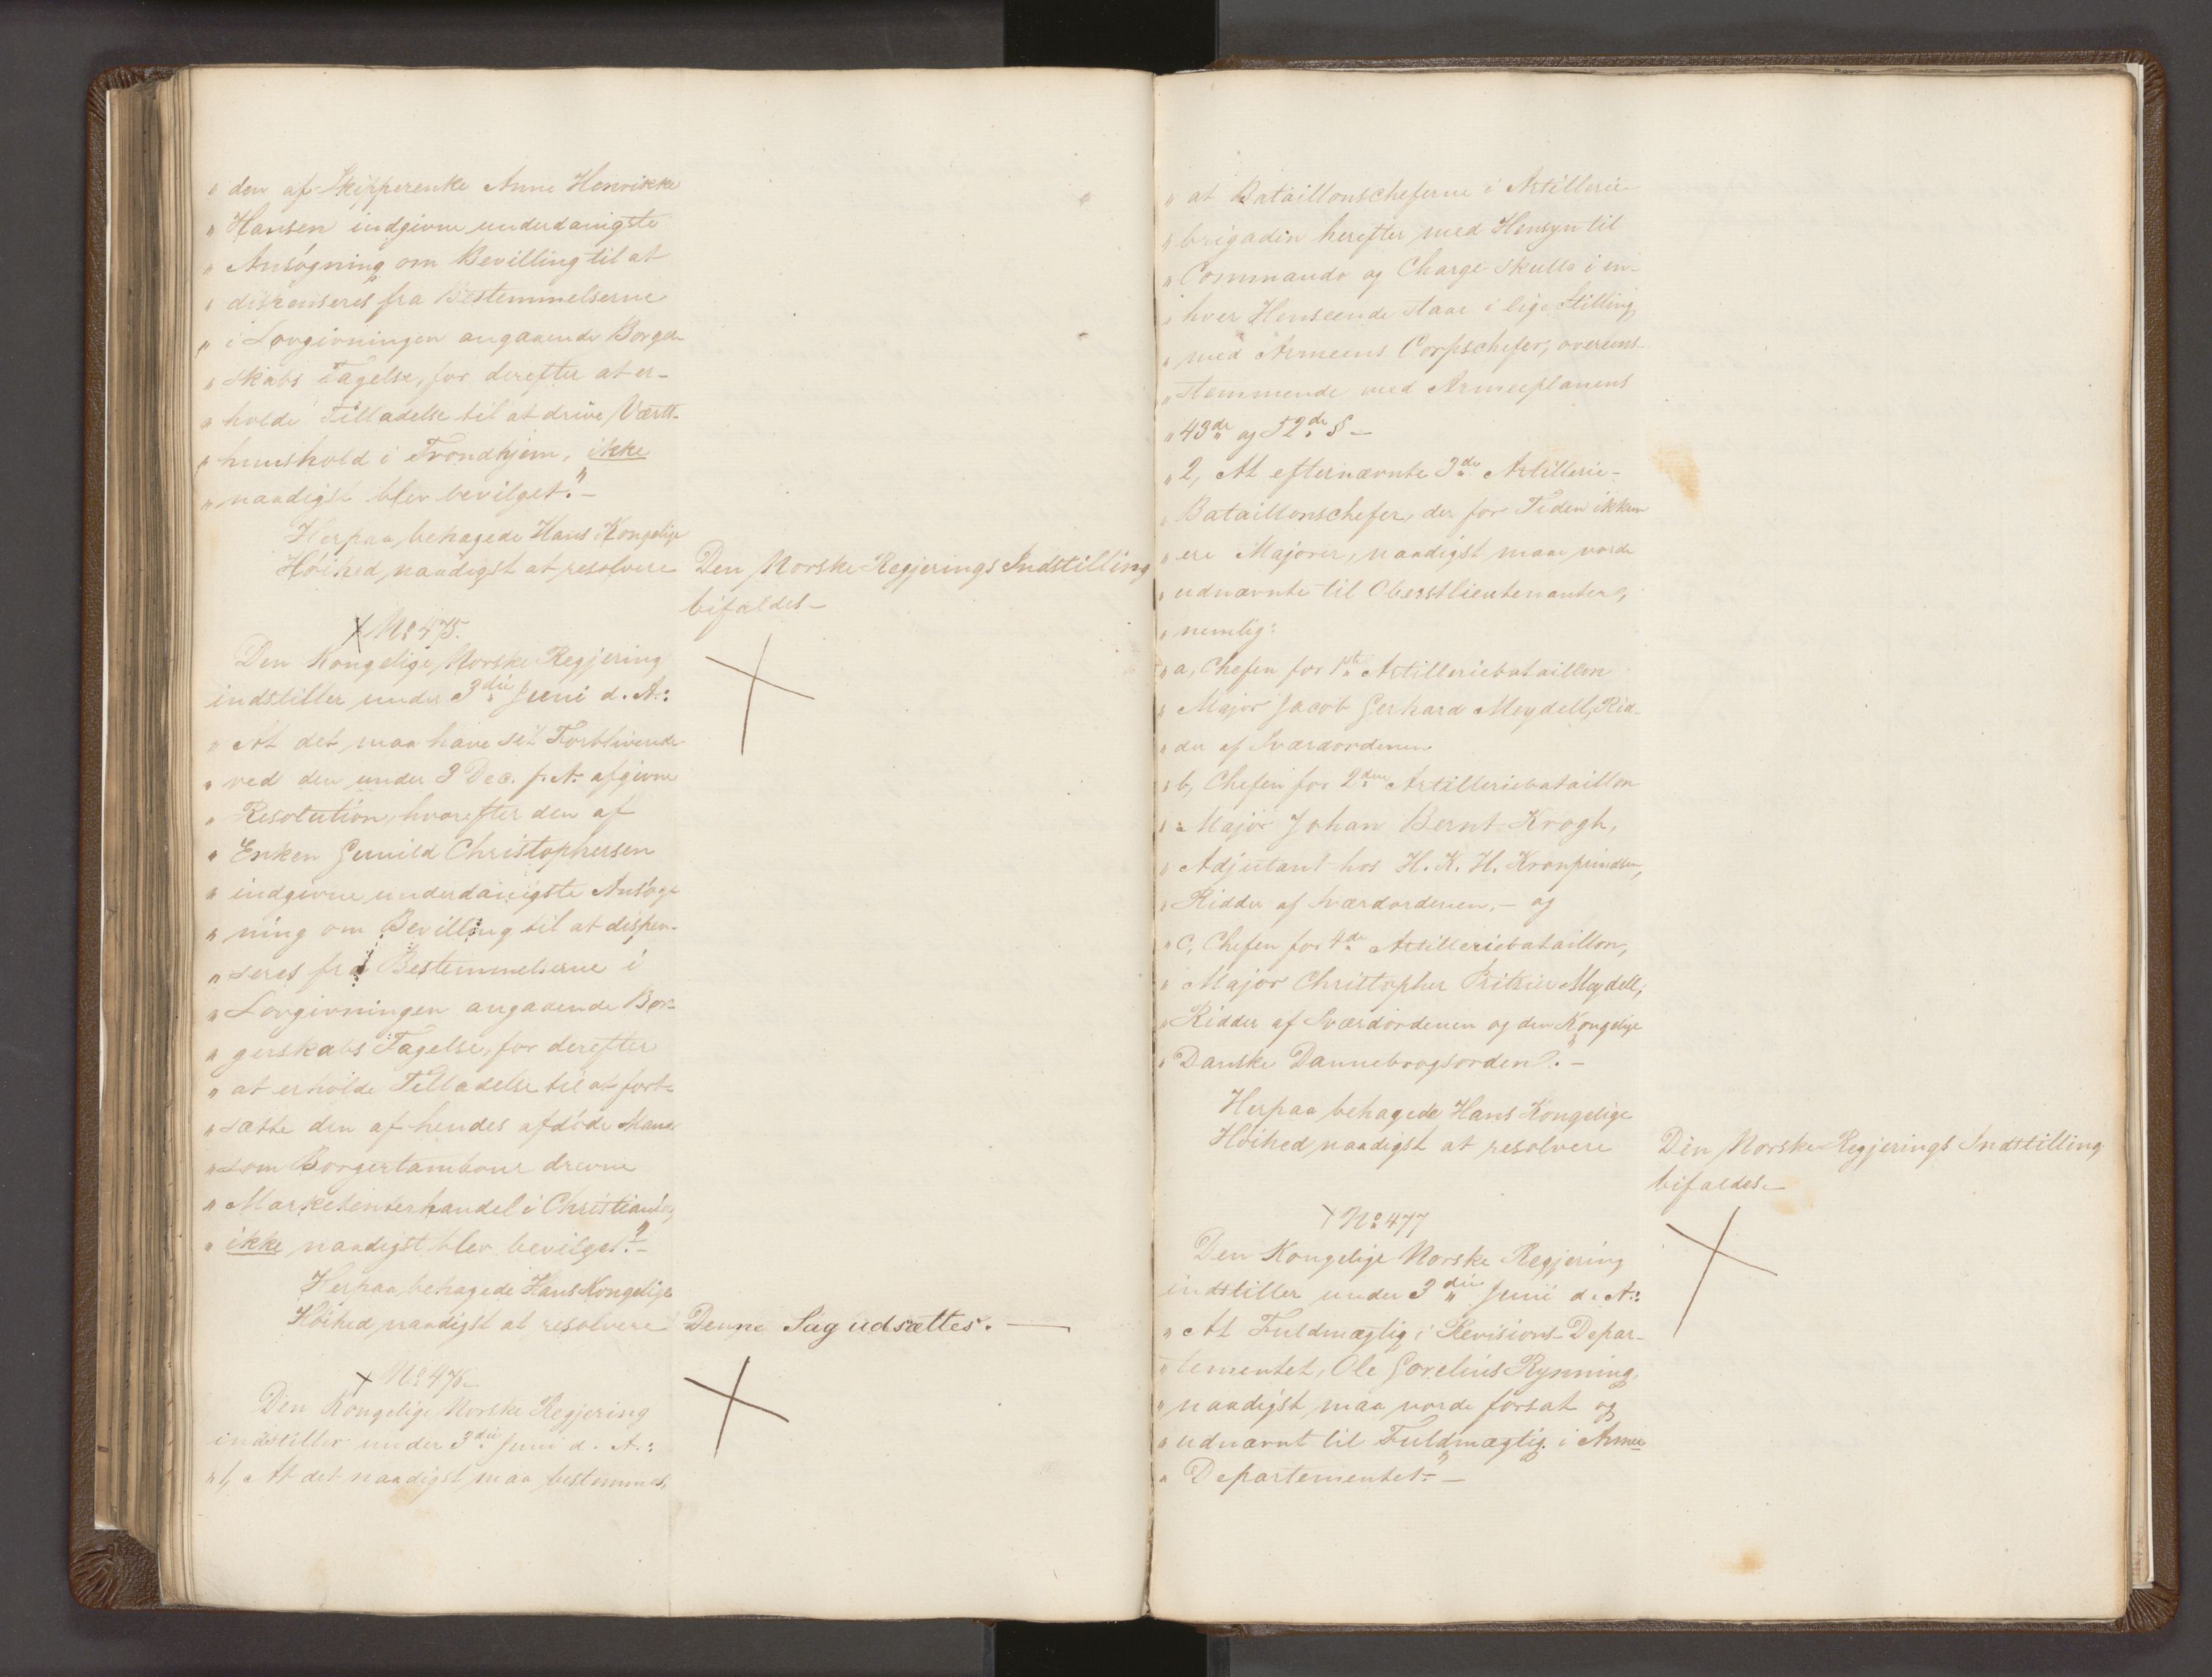 " den af Skipperenke Anne Henrikke
" Hansen indgivne underdanigste
" Ansøgning om Bevilling til at
" dispenseres fra Bestemmelserne
" i Lovgivningen angaaende Borger-
" skabs Tagelse, for derefter at er-
" holde Tilladelse til at drive Værts-
" huushold i Trondhjem, ikke
" naadigst blev bevilget." —
Herpaa behagede Hans Kongelige
Høihed naadigst at resolvere
Den Norske Regjerings Indstilling
bifaldes —
No 475.
Den Kongelige Norske Regjering
indstiller under 3die Juni d. A.:
" At det maa have sit Forblivende
" ved den under 3 Dec. f. A. afgivne
" Resolution, hvorefter den af
" Enken Gunild Christophersen
" indgivne underdanigste Ansøg-
" ning om Bevilling til at dispen-
" seres fra Bestemmelserne i
" Lovgivningen angaaende Bor-
" gerskabs Tagelse, for derefter
" at erholde Tilladelse til at fort-
" sætte den af hendes afdøde Mand
" som Borgertambour drevne
" Marketenterhandel i Christiania,
" ikke naadigst blev bevilget." —
Herpaa behagede Hans Kongelige
Høihed naadigst at resolvere
Denne Sag udsættes. —
No 476
Den Kongelige Norske Regjering
indstiller under 3die Juni d. A.:
" 1, At det naadigst maa bestemmes,
" at Bataillonscheferne i Artillerie
" brigaden herefter med Hensyn til
" Commando og Charge skulle i en-
" hver Henseende staae i lige Stilling
" med Armeens Corpschefer, overeens-
" stemmende med Armeeplanens
" 43de og 52de § —
" 2, At efternævnte 3de Artillerie-
" Bataillonschefer, der for Tiden ikkun
" ere Majorer, naadigst maae vorde
" udnævnte til Oberstlieutenanter,
" nemlig:
" a, Chefen for 1ste Artilleriebataillon
" Major Jacob Gerhard Meydell, Rid-
" der af Sværdordenen
" b, Chefen for 2den Artilleriebataillon
" Major Johan Bernt Krogh,
" Adjutant hos H. K. H. Kronprindsen,
" Ridder af Sværdordenen, — og
" c, Chefen for 4de Artilleriebataillon,
" Major Christopher Meydell,
" Ridder af Sværdordenen og den Kongelige
" Danske Dannebrogsorden". —
Herpaa behagede Hans Kongelige
Høihed naadigst at resolvere
Den Norske Regjerings Indstilling
bifaldes. —
No 477
Den Kongelige Norske Regjering
indstiller under 3die Juni d. A.:
" At Fuldmægtig i Revisions-Depar-
" tementet, Ole Gorelius Rynning,
" naadigst maa vorde forsat og
" udnævnt til Fuldmægtig i Armee
" Departementet." —